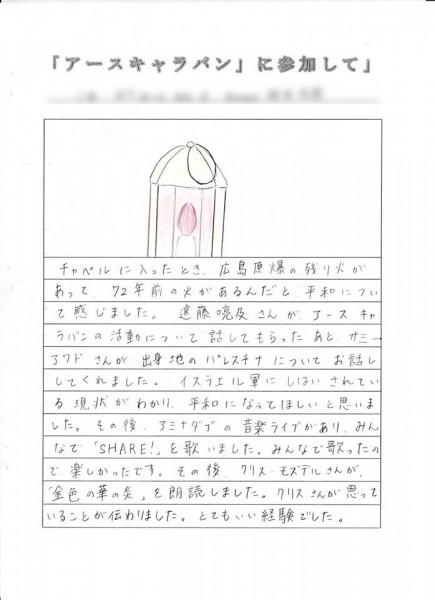 「アースキャラバン」に参加して」
チャペルに入ったとき、広島原爆の残り火が
あって、72年前の火があるんだと、平和につい
て感じました。遠藤喨及さんが、アースキャ
ラバンの活動について話してもらったあと、サミー
アワドさんが出身地のパレスチナについてお話し
してくれました。イスラエル軍にしはいされてい
る現状がわかり、平和になってほしいと思いま
した。その後、アミナダブの音楽ライブがあり、みん
なで「SHARE!」を歌いました。みんなで歌ったの
で楽しかったです。その後、クリス・モズデルさんが、
「金色の華の炎」を朗読しました。クリスさんが思って
いることが伝わりました。とてもいい経験でした。